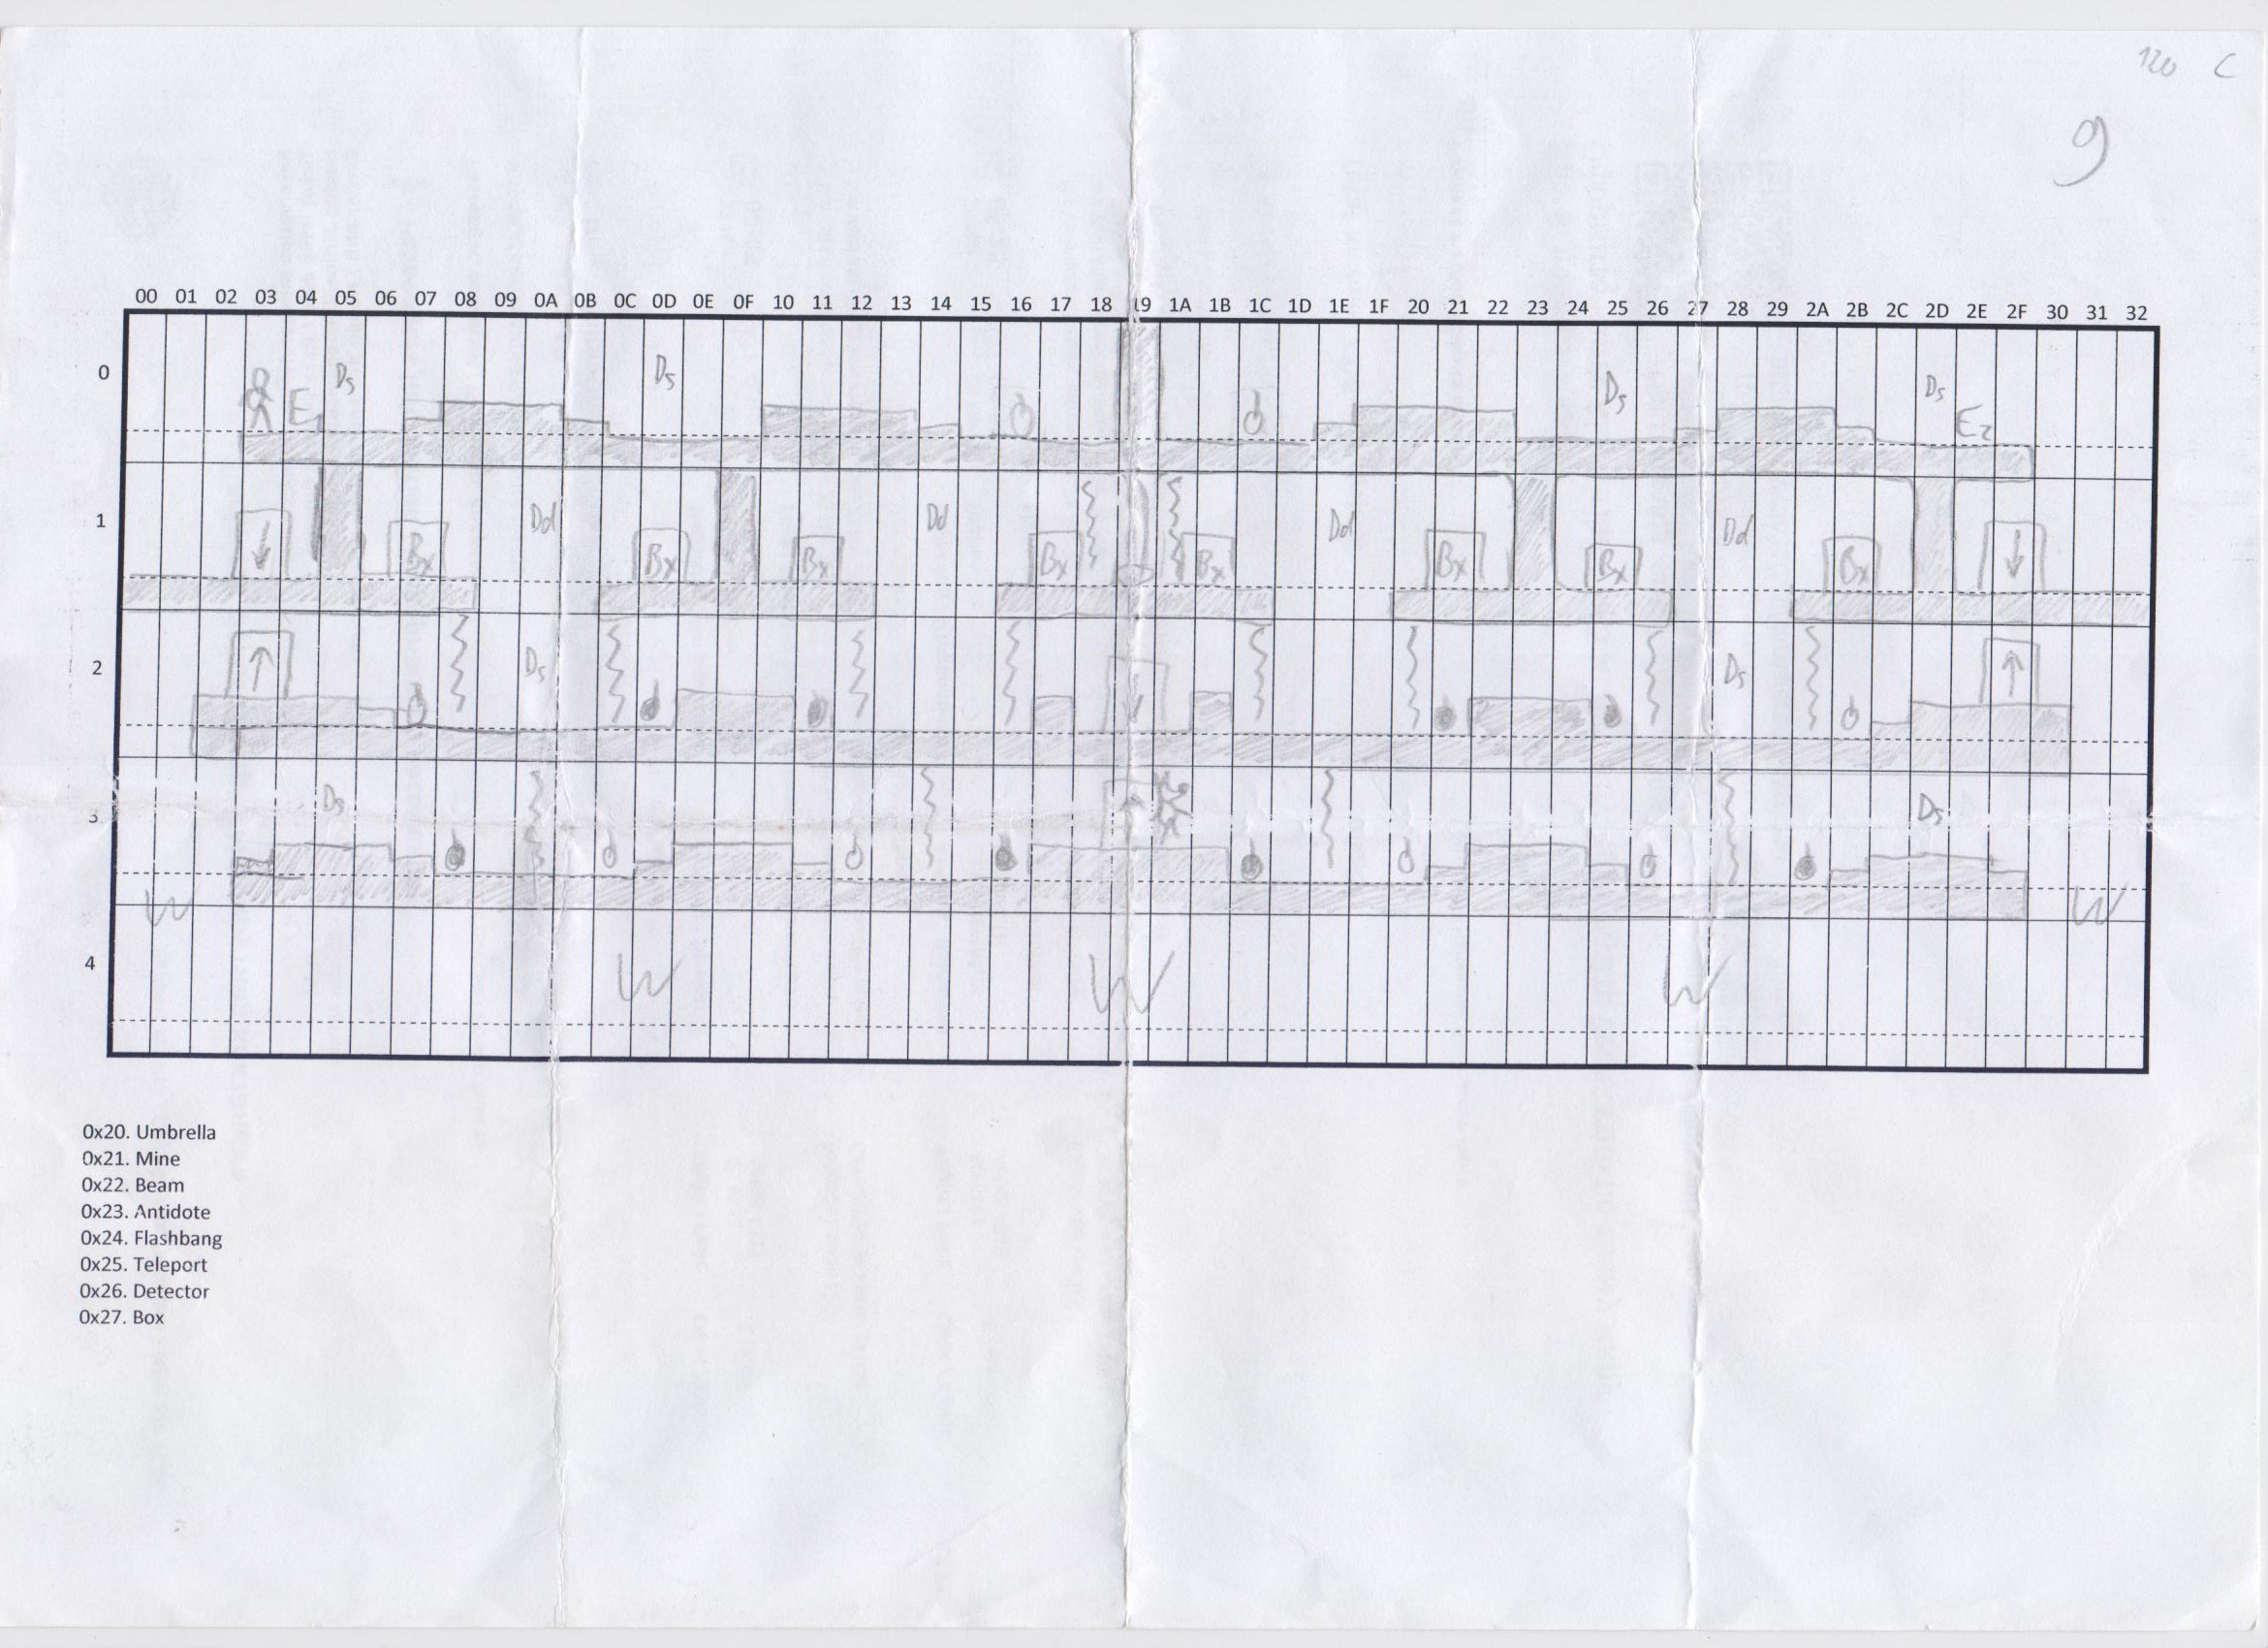 120 C
9
00 01 02 03 04 05 06 07 08 09 0A 0B 0C 0D 0E 0F 10 11 12 13 14 15 16 17 18 19 1A 1B 1C 1D 1E 1F 20 21 22 23 24 25 26 27 28 29 2A 2B 2C 2D 2E 2F 30 31 32
0 E1 Ds Ds Ds Ds E2
1 Bx Dd Bx Bx Dd Bx Bx Dd Bx Bx Dd Bx
2 Ds Ds
3 Ds Ds
W W
4 W W W
0x20. Umbrella
0x21. Mine
0x22. Beam
0x23. Antidote
0x24. Flashbang
0x25. Teleport
0x26. Detector
0x27. Box